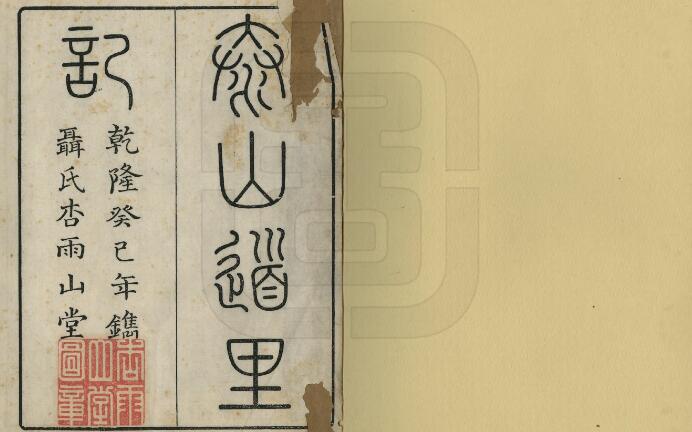 泰山道里
記
乾隆癸巳年鐫
聶氏杏雨山堂
杏雨
山堂
圖章